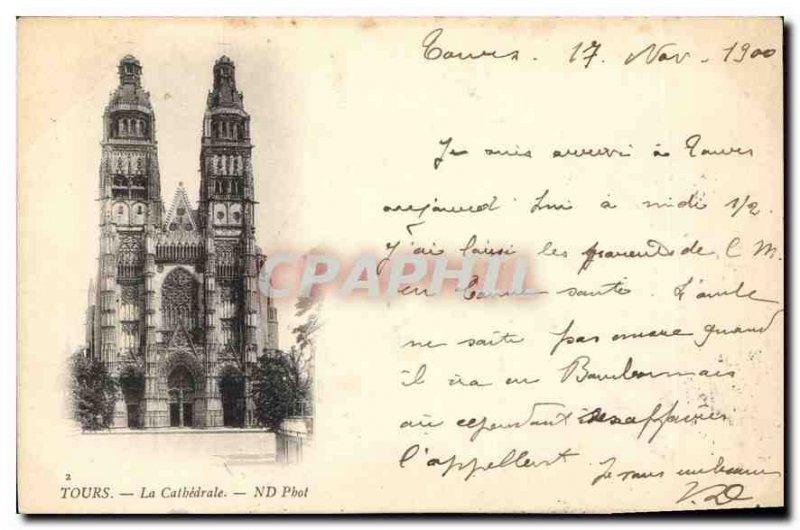 Tours. 17 Nov. 1900
Je suis arrivé à Tours
aujourd'hui à midi 1/2.
J'ai laissé les parents de C M.
en bonne santé.
ne sait pas encore quand
il ira en Bourbonnais
où cependant des affaires
l'appellent. Je vous embrasse
V.D
CPAPHIL
2
TOURS. — La Cathédrale. — ND Phot